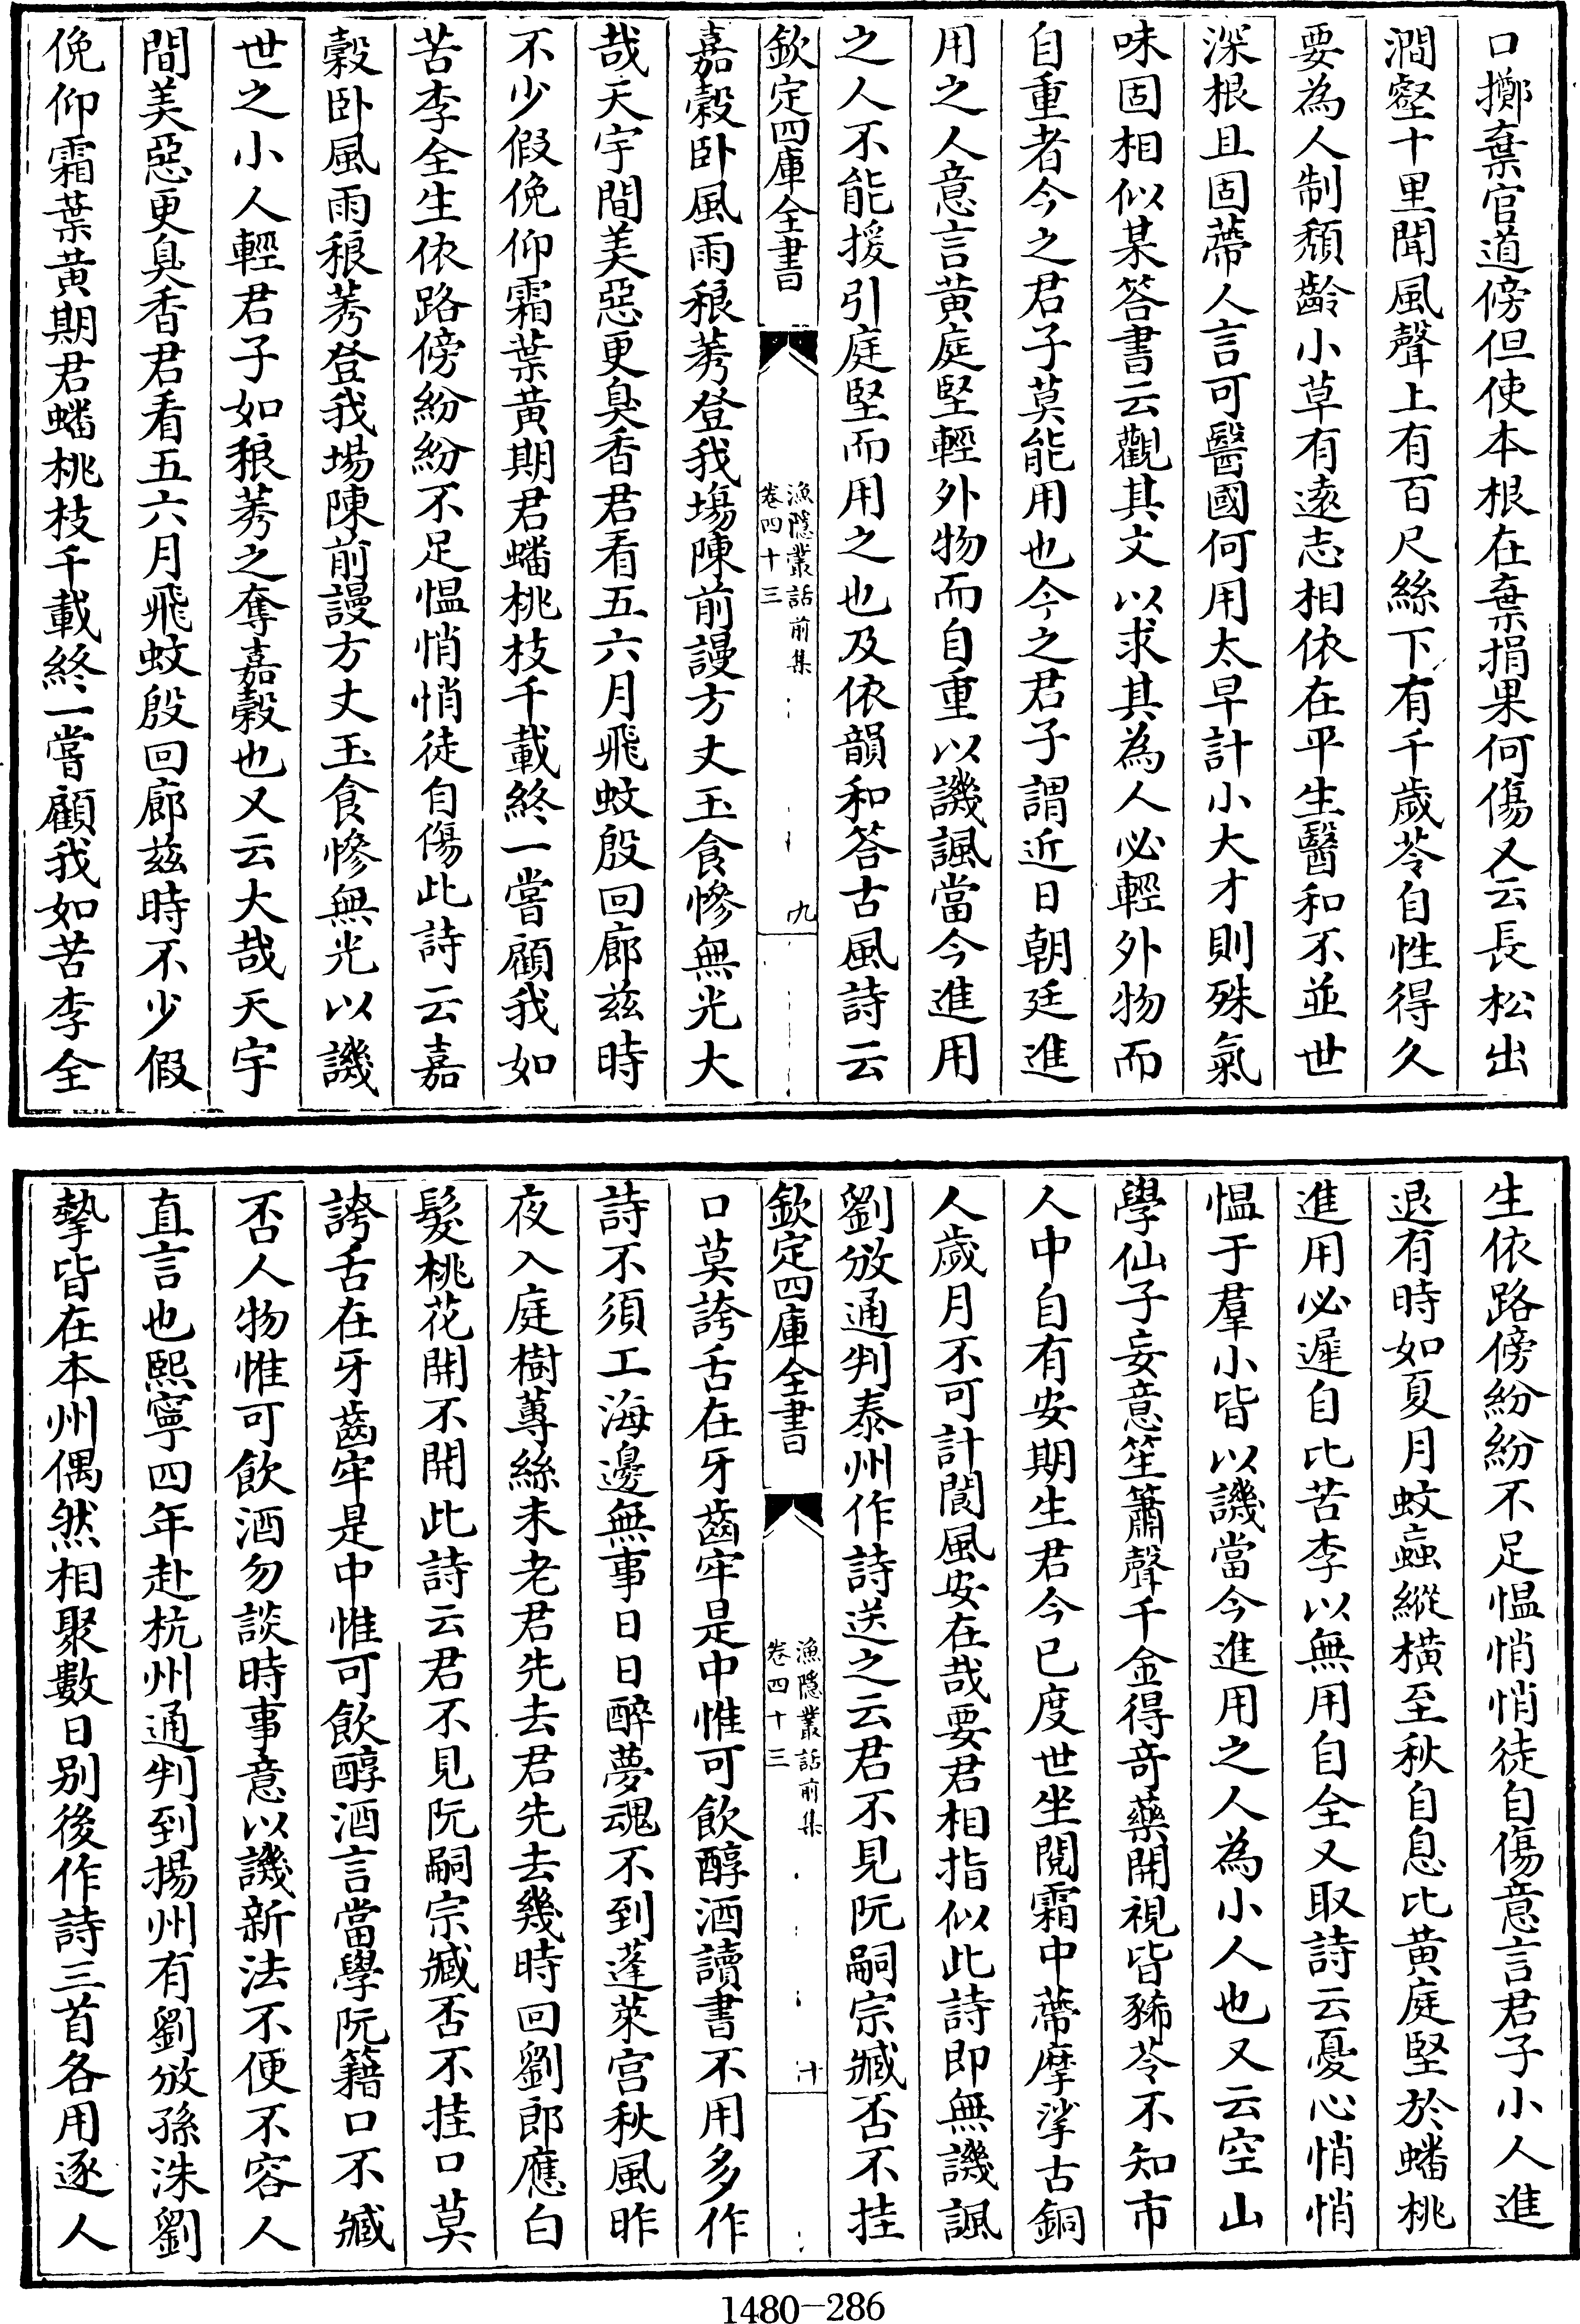 口擲棄官道傍但使本根在棄捐果何傷又云長松出
澗壑十里聞風聲上有百尺絲下有千歲苓自性得久
要為人制頹齡小草有遠志相依在平生醫和不並世
深根且固蔕人言可醫國何用太早計小大才則殊氣
味固相似某答書云觀其文以求其為人必輕外物而
自重者今之君子莫能用也今之君子謂近日朝廷進
用之人意言黄庭堅輕外物而自重以譏諷當今進用
之人不能援引庭堅而用之也及依韻和答古風詩云
欽定四庫全書
漁隱叢話前集
卷四十三
九
嘉穀卧風雨稂莠登我場陳前謾方丈玉食慘無光大
哉天宇間美惡更臭香君看五六月飛蚊殷回廊茲時
不少假俛仰霜葉黄期君蟠桃枝千載終一嘗顧我如
苦李全生依路傍紛紛不足愠悄悄徒自傷此詩云嘉
穀卧風雨稂莠登我場陳前謾方丈玉食慘無光以譏
世之小人輕君子如稂莠之奪嘉穀也又云大哉天宇
間美惡更臭香君看五六月飛蚊殷回廊茲時不少假
俛仰霜葉黄期君蟠桃枝千載終一嘗顧我如苦李全
生依路傍紛紛不足愠悄悄徒自傷意言君子小人進
退有時如夏月蚊蝱縱橫至秋自息比黄庭堅於蟠桃
進用必遲自比苦李以無用自全又取詩云憂心悄悄
愠于羣小皆以譏當今進用之人為小人也又云空山
學仙子妄意笙簫聲千金得奇藥開視皆豨苓不知市
人中自有安期生君今已度世坐閲霜中蔕摩挲古銅
人歲月不可計閬風安在哉要君相指似此詩即無譏諷
劉攽通判泰州作詩送之云君不見阮嗣宗臧否不挂
欽定四庫全書
漁隱叢話前集
卷四十三
十
口莫誇舌在牙齒牢是中惟可飲醇酒讀書不用多作
詩不須工海邊無事日日醉夢魂不到蓬萊宫秋風昨
夜入庭樹蓴絲未老君先去君先去幾時回劉郎應白
髮桃花開不開此詩云君不見阮嗣宗臧否不挂口莫
誇舌在牙齒牢是中惟可飲醇酒言當學阮籍口不臧
否人物惟可飲酒勿談時事意以譏新法不便不容人
直言也熙寧四年赴杭州通判到揚州有劉攽孫洙劉
摯皆在本州偶然相聚數日别後作詩三首各用逐人
1480-286